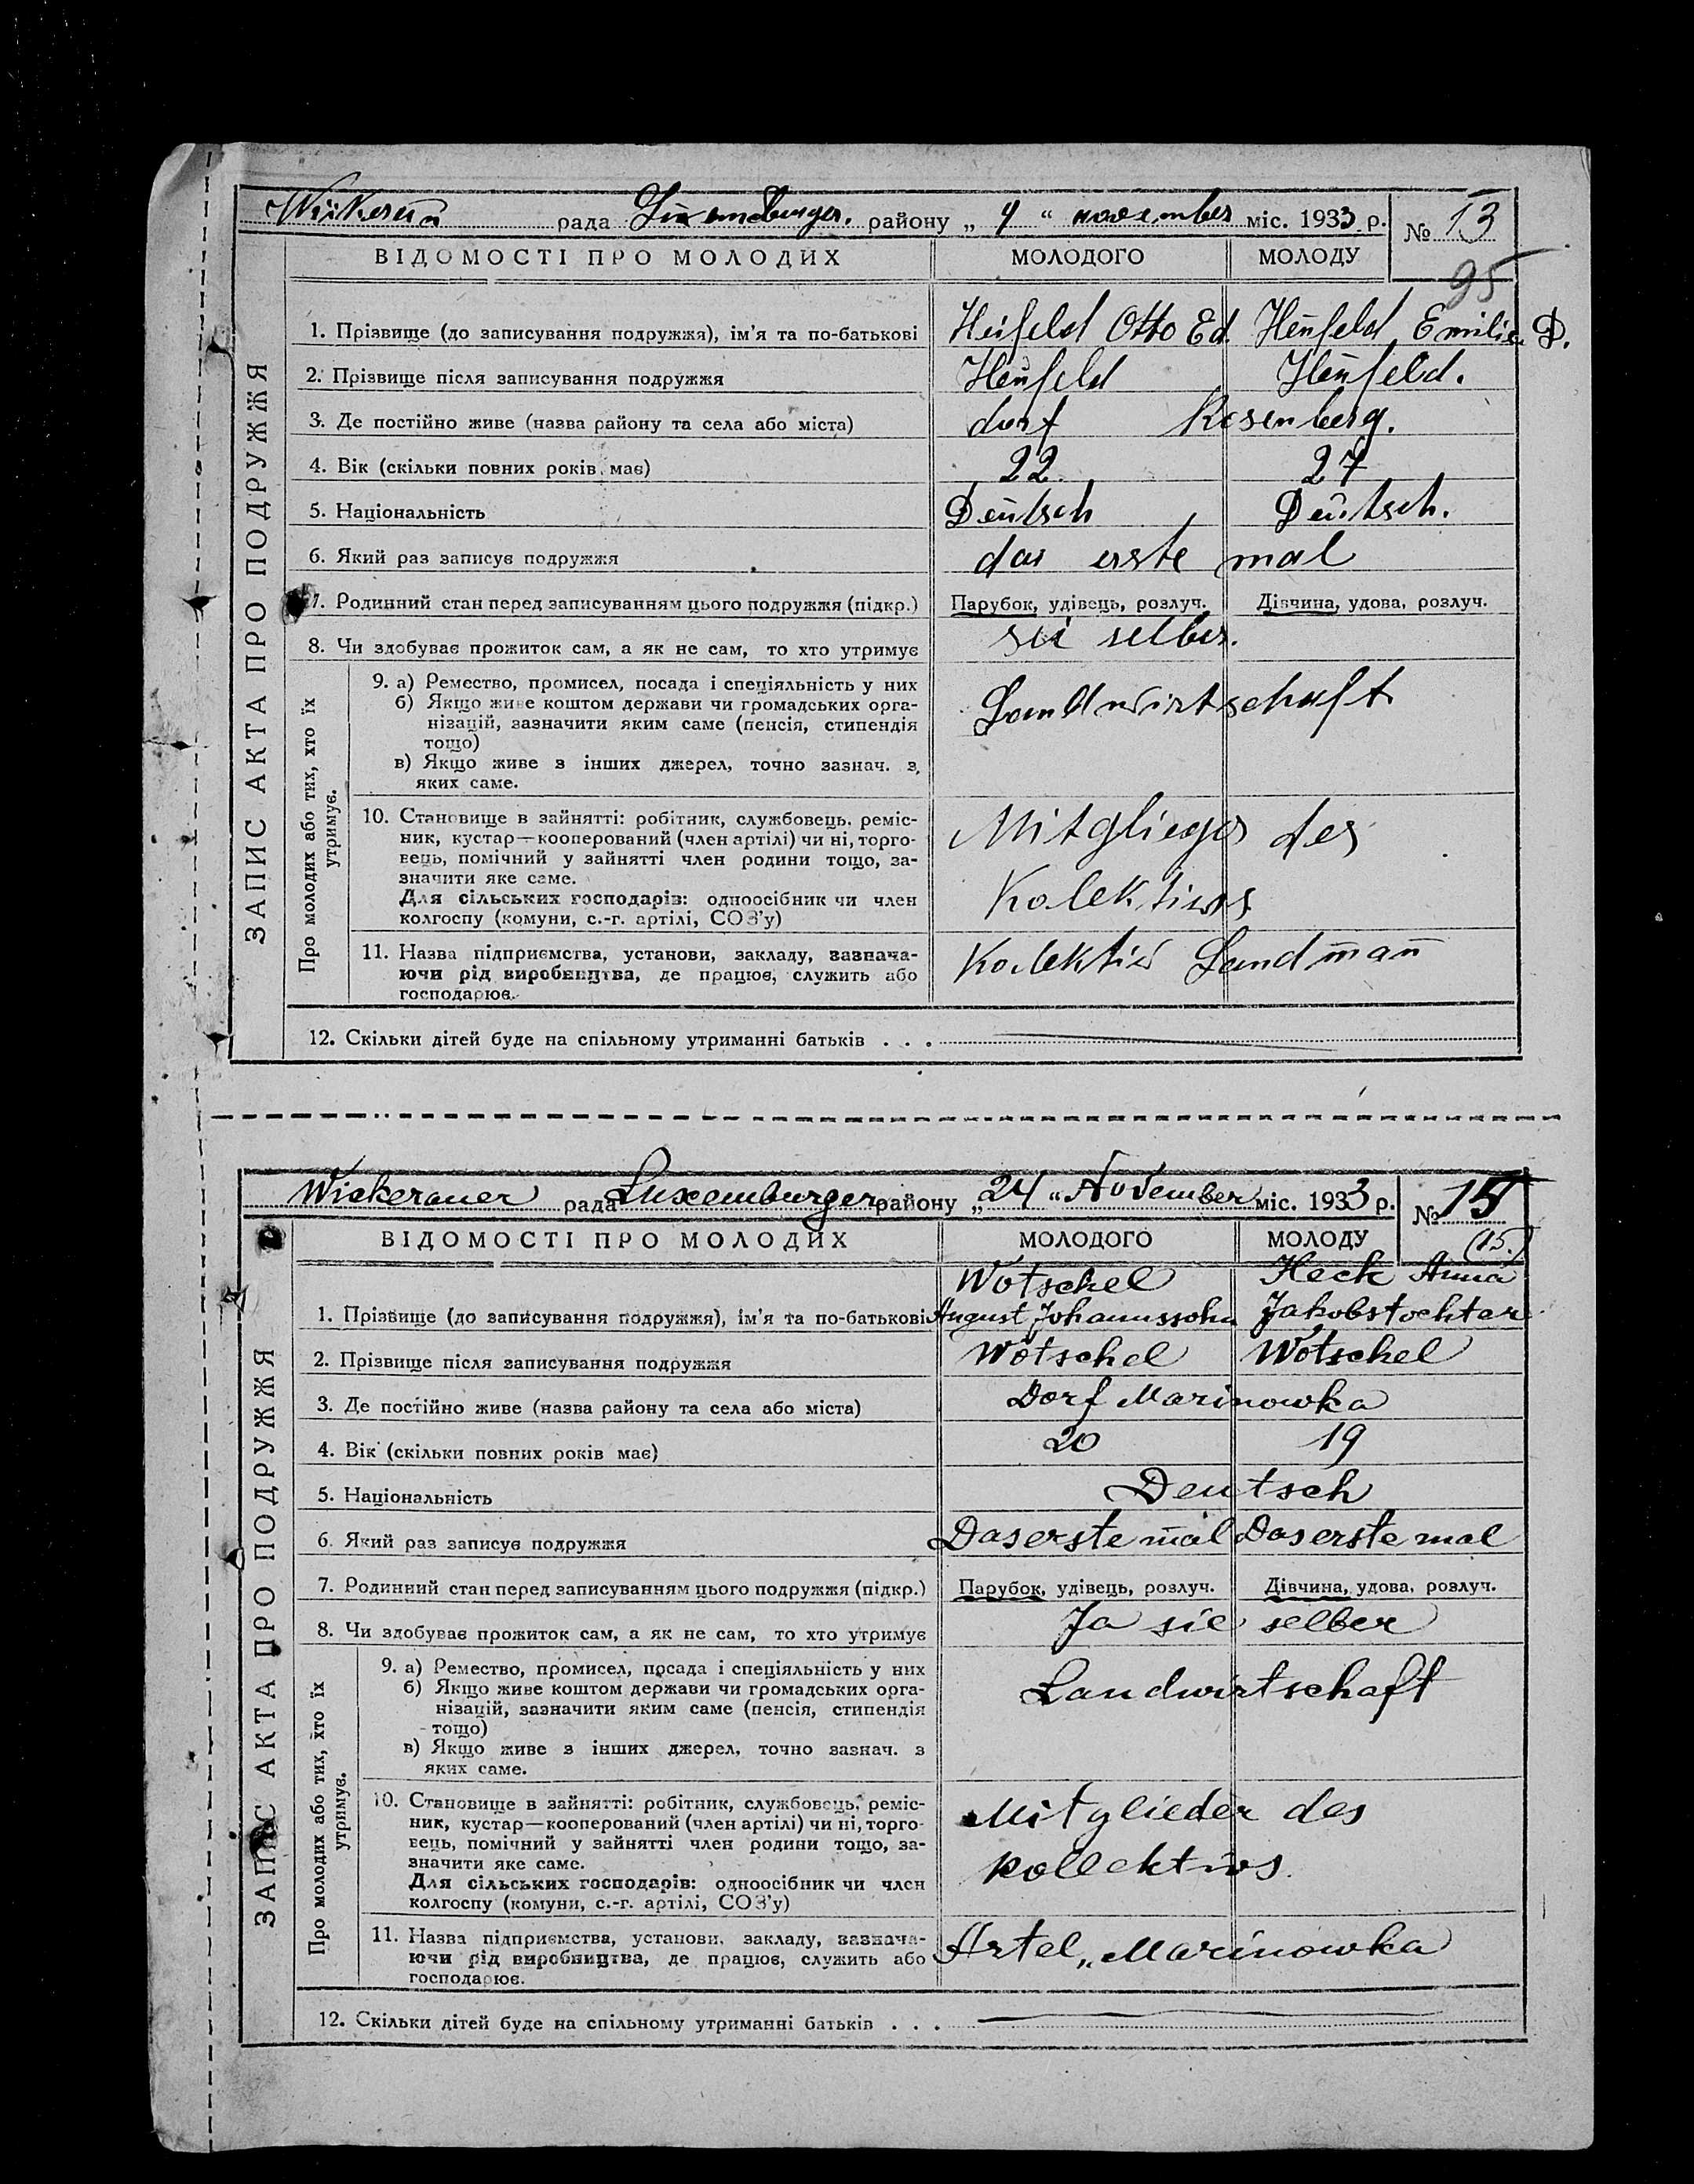 рада Luxemburger. району „ 4 “ november міс. 1933 р. № 13
95
ВІДОМОСТІ ПРО МОЛОДИХ МОЛОДОГО МОЛОДУ
ЗАПИС АКТА ПРО ПОДРУЖЖЯ
1. Прізвище (до записування подружжя), ім'я та по-батькові Heifeld Otto Ed. Heufeld Emilie D.
2. Прізвище після записування подружжя Heufeld Heufeld.
3. Де постійно живе (назва району та села або міста) dorf Rosenberg.
4. Вік (скільки повних років має) 22. 27
5. Національність Deutsch Deutsch.
6. Який раз записує подружжя das erste mal
7. Родинний стан перед записуванням цього подружжя (підкр.) Парубок, удівець, розлуч. Дівчина, удова, розлуч.
8. Чи здобуває прожиток сам, а як не сам, то хто утримує sie selber.
Про молодих або тих, хто їх утримує.
9. а) Ремество, промисел, посада і спеціяльність у них Landwirtschaft
б) Якщо живе коштом держави чи громадських орга-
нізацій, зазначити яким саме (пенсія, стипендія
тощо)
в) Якщо живе з інших джерел, точно зазнач. з
яких саме.
10. Становище в зайнятті: робітник, службовець, реміс- Mitglieder des
ник, кустар—кооперований (член артілі) чи ні, торго-
вець, помічний у зайнятті член родини тощо, за-
значити яке саме.
Для сільських господарів: одноосібник чи член Kolektivs
колгоспу (комуни, с.-г. артілі, СОЗ'у)
11. Назва підприємства, установи, закладу, зазнача- Kolektiv Landmann
ючи рід виробництва, де працює, служить або
господарює.
12. Скільки дітей буде на спільному утриманні батьків . . .
Wickerauer рада Luxemburger району „ 24 “ November міс. 1933 р. № 15
(15.)
ВІДОМОСТІ ПРО МОЛОДИХ МОЛОДОГО МОЛОДУ
ЗАПИС АКТА ПРО ПОДРУЖЖЯ
Wotschel Heck Anna
1. Прізвище (до записування подружжя), ім'я та по-батькові August Johannssohn Jakobstochter
2. Прізвище після записування подружжя Wotschel Wotschel
3. Де постійно живе (назва району та села або міста) Dorf Marinowka
4. Вік (скільки повних років має) 20 19
5. Національність Deutsch
6. Який раз записує подружжя Das erste mal Das erste mal
7. Родинний стан перед записуванням цього подружжя (підкр.) Парубок, удівець, розлуч. Дівчина, удова, розлуч.
8. Чи здобуває прожиток сам, а як не сам, то хто утримує Ja sie selber
Про молодих або тих, хто їх утримує.
9. а) Ремество, промисел, посада і спеціяльність у них Landwirtschaft
б) Якщо живе коштом держави чи громадських орга-
нізацій, зазначити яким саме (пенсія, стипендія
тощо)
в) Якщо живе з інших джерел, точно зазнач. з
яких саме.
10. Становище в зайнятті: робітник, службовець, реміс- Mitglieder des
ник, кустар—кооперований (член артілі) чи ні, торго-
вець, помічний у зайнятті член родини тощо, за- Kollektivs.
значити яке саме.
Для сільських господарів: одноосібник чи член
колгоспу (комуни, с.-г. артілі, СОЗ'у)
11. Назва підприємства, установи, закладу, зазнача- Artel „Marinowka
ючи рід виробництва, де працює, служить або
господарює.
12. Скільки дітей буде на спільному утриманні батьків . . .